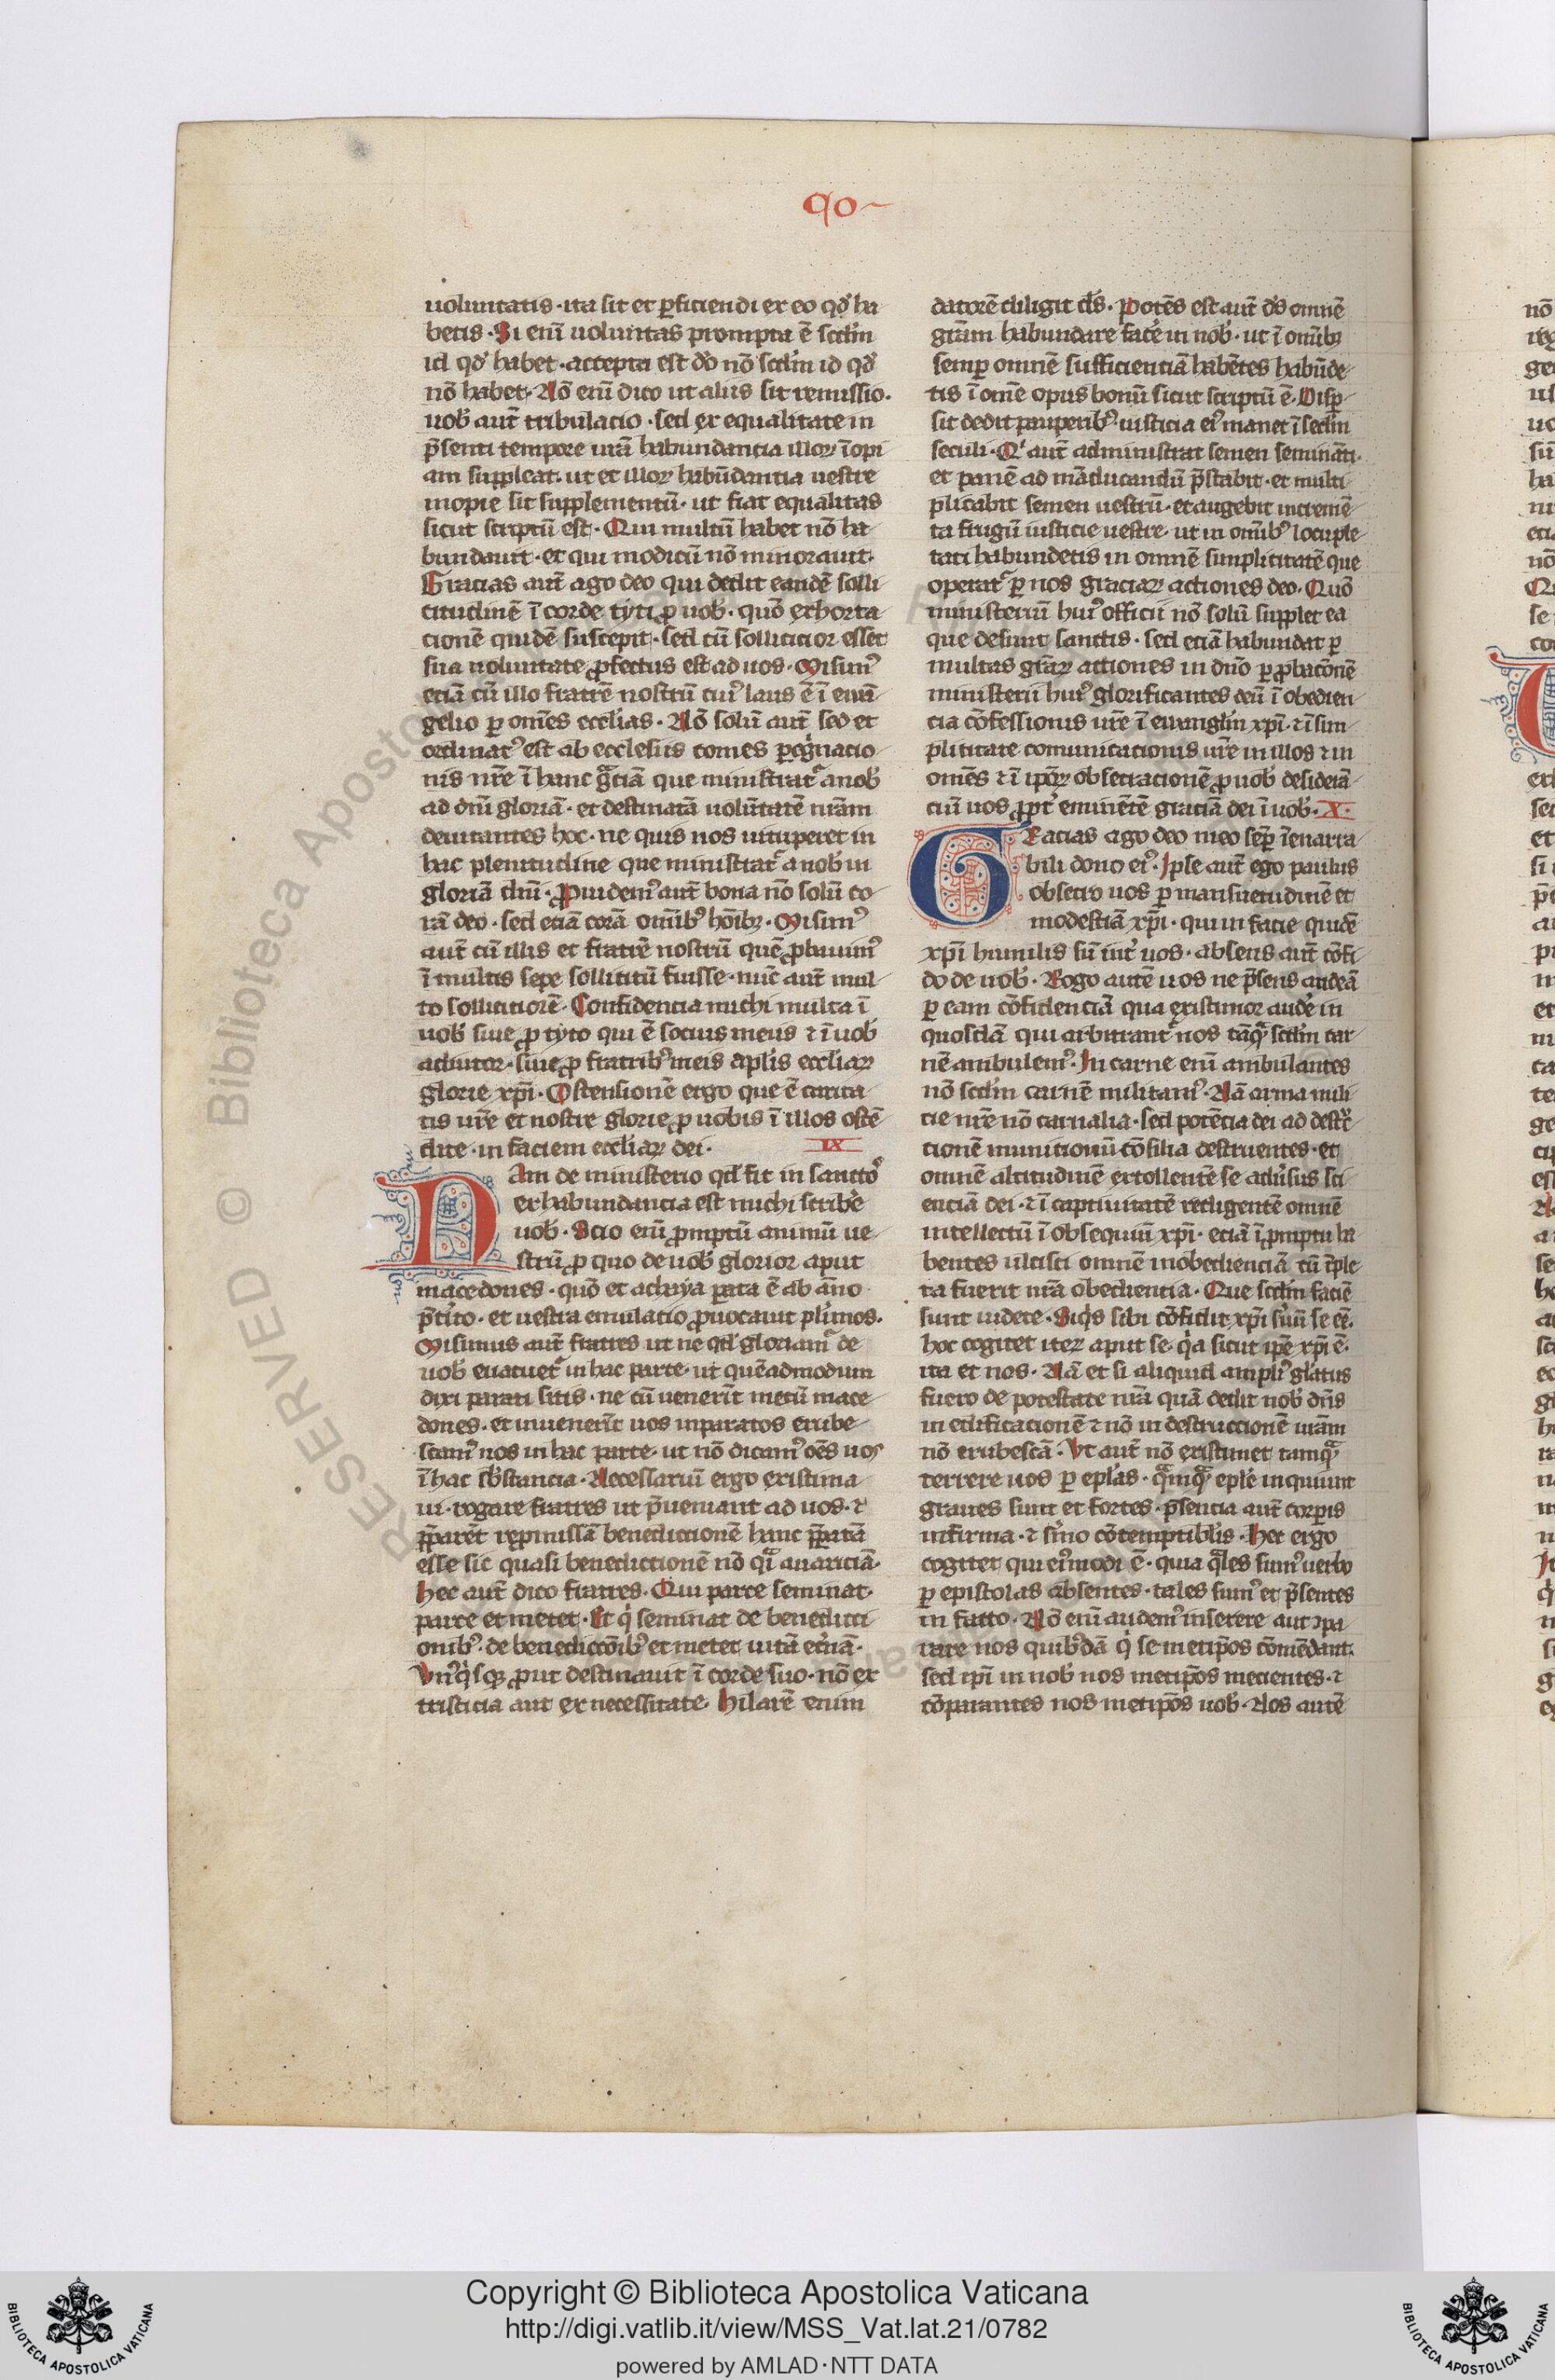 qo
uoluntatis · ita sit et ꝑficiendi ex eo qd̓ ha
betis · Si eni̅ uoluntas prompta e̅ scd̓m
id qd̓ habet · accepta est do̅ no̅ scd̓m id qd̓
no̅ habet · No̅ eni̅ dico ut aliis sit remissio ·
uob̓ aut̅ tribulacio · sed ex equalitate in
p̅senti tempore ur̅a habundancia illoꝝ i̅opi
am suppleat · ut et illoꝝ habu̅dantia uestre
inopie sit supplementu̅ · ut fiat equalitas
sicut scriptu̅ est · Qui multu̅ habet no̅ ha
bundauit · et qui modicu̅ no̅ minorauit ·
Gracias aut̅ ago deo qui dedit eande̅ solli
citudine̅ i̅ corde tyti ꝓ uob̓ · quo̅ exhorta
cione̅ quide̅ suscepit · sed cu̅ sollicitior esset
sua uoluntate ꝓfectus est ad uos · Misimꝰ
ecia̅ cu̅ illo fratre̅ nostru̅ cuiꝰ laus e̅ i̅ eua̅
gelio ꝑ om̅es eccl̓ias · No̅ solu̅ aut̅ sed et
ordinatꝰ est ab ecclesiis comes ꝑeg̓nacio
nis nr̅e i̅ hanc gͣcia̅ que ministrat᷑ a nob̓
ad dn̅i gloria̅ · et destinata̅ uolu̅tate̅ nr̅am
deuitantes hoc · ne quis nos uituperet in
hac plenitudine que ministrat᷑ a nob̓ in
gloria̅ dn̅i · Ꝓuidemꝰ aut̅ bona no̅ solu̅ co
ra̅ deo · sed ecia̅ cora̅ omib̅ꝰ ho̅ib̅ꝫ · Misimꝰ
aut̅ cu̅ illis et fratre̅ nostru̅ que̅ ꝓbauimꝰ
i̅ multis sepe sollicitu̅ fuisse · nu̅c aut̅ mul
to sollicitiore̅ · Confidencia michi multa i̅
uob̓ siue ꝓ tyto qui e̅ socius meus ⁊ i̅ uob̓
adiutor · siue ꝓ fratribꝰ meis apl̓is eccl̓iaꝝ
glorie xp̅i · Ostensione̅ ergo que e̅ carita
tis ur̅e et nostre glorie ꝓ uobis i̅ illos oste̅
dite · in faciem eccl̓iaꝝ dei · IX
Nam de ministerio qd̓ fit in sanctoˢ
ex habundancia est michi scribe̓
uob̓ · Scio eni̅ ꝓmptu̅ animu̅ ue
stru̅ ꝓ quo de uob̓ glorior aput
macedones · quo̅ et achaya ꝑata e̅ ab an̅o
p̅t̓ito · et uestra emulatio ꝓuocauit pl̓imos ·
Misimus aut̅ fratres ut ne qd̓ gloriam᷑ de
uob̓ euacuet᷑ in hac parte · ut que̅admodum
dixi parati sitis · ne cu̅ uener̅it mecu̅ mace
dones · et inuener̅it uos inparatos erube
scamꝰ nos in hac parte · ut no̅ dicamꝰ oe̅s uos
i̅ hac sb̓stancia · Necessariu̅ ergo existima
ui · rogare fratres ut p̅ueniant ad uos · ⁊
p̅ꝑare̅t repmissa̅ benedictione̅ hanc ꝑata̅
esse sic quasi benedictione̅ no̅ qͣi auaricia̅ ·
Hec aut̅ dico fratres · Qui parce seminat ·
parce et metet · Et qͥ seminat de benedicti
onibꝰ · de benedicco̅ibꝰ et metet uita̅ et̓na̅ ·
Vnꝰqͥsqꝫ ꝓut destinauit i̅ corde suo · no̅ ex
tristicia aut ex necessitate · Hilare̅ enim
datore̅ diligit d̅s · Pote̅s est aut̅ d̅s omne̅
gr̅am habundare face̓ in nob̓ · ut i̅ omib̅ꝫ
semꝑ omne̅ sufficiencia̅ habe̅tes habu̅de
tis i̅ om̅e opus bonu̅ sicut scriptu̅ e̅ · Disꝑ
sit dedit pauperibꝰ · iusticia eiꝰ manet i̅ secl̓m
seculi · Qͥ aut̅ administrat semen semina̅ti ·
et pane̅ ad ma̅ducandu̅ p̅stabit · et multi
plicabit semen uestru̅ · et augebit increme̅
ta frugu̅ iusticie uestre · ut in omib̅ꝰ locuple
tati habundetis in omne̅ simplicitate̅ que
operat᷑ ꝑ nos graciaꝝ actiones deo · Quo̅
ministeriu̅ huiꝰ officii no̅ solu̅ supplet ea
que desunt sanctis · sed ecia̅ habundat ꝑ
multas gr̅aꝝ actiones in dn̅o ꝑ ꝓbaco̅ne̅
ministerii huiꝰ glorificantes deu̅ i̅ obedien
cia co̅fessionis ur̅e i̅ euangl̓in xp̅i · ⁊ i̅ sim
plicitate comunicacionis ur̅e in illos ⁊ in
om̅es ⁊ i̅ ip̅oꝝ obsecracione̅ ꝓ uob̓ desidera̅
ciu̅ uos ꝓpt̓ emine̅te̅ gracia̅ dei i̅ uob̓ · X ·
Gracias ago deo meo semꝑ i̅enarra
bili dono eiꝰ · Ipse aut̅ ego paulus
obsecro uos ꝑ mansuetudine̅ et
modestia̅ xp̅i · qui in facie quide̅
xp̅i humilis su̅ int̓ uos · absens aut̅ co̅fi
do de uob̓ · Rogo aute̅ uos ne p̅sens audea̅
ꝑ eam co̅fidencia̅ qua existimor aude̓ in
quosda̅ qui arbitrant᷑ nos ta̅qͣ scd̓m car
ne̅ ambulemꝰ · In carne eni̅ ambulantes
no̅ scd̓m carne̅ militamꝰ · Na̅ arma mili
cie nr̅e no̅ carnalia · sed pote̅cia dei ad destr̓c
tione̅ munitionu̅ co̅silia destruentes · et
omne̅ altitudine̅ extollente̅ se adu̓sus sci
encia̅ dei · ⁊ i̅ captiuitate̅ redigente̅ omne̅
intellectu̅ i̅ obsequiu̅ xp̅i · ecia̅ i̅ ꝓmptu ha
bentes ulcisci omne̅ inobediencia̅ cu̅ i̅ple
ta fuerit ur̅a obediencia · Que scd̓m facie̅
sunt uidete · Siqͥs sibi co̅fidit xp̅i su̓u̅ se ee̅ ·
hoc cogitet iteꝝ aput se · qͥa sicut ip̅e xp̅i e̅ ·
ita et nos · Na̅ et si aliquid ampliꝰ gl̓iatus
fuero de potestate nr̅a qua̅ dedit nob̓ dn̅s
in edificatione̅ ⁊ no̅ in destruccione̅ ur̅am
no̅ erubesca̅ · Vt aut̅ no̅ existimet tamqͣ
terrere uos ꝑ epl̓as · qͣmqͣ epl̓e inquiunt
graues sunt et fortes · p̅sencia aut̅ corpis
infirma · ⁊ s̓mo co̅temptiblis · Hec ergo
cogitet qui eiꝰmodi e̅ · quia qͣles sumꝰ uerbo
ꝑ epistolas absentes · tales sumꝰ et p̅sentes
in facto · No̅ eni̅ audemꝰ inserere aut ꝯpa
rare nos quibꝰda̅ qͥ se metip̅os co̅me̅dant ·
sed ip̅i in nob̓ nos metip̅os mecientes · ⁊
co̅parantes nos metip̅os uob̓ · Nos aute̅
RESERVED © Biblioteca Aposto
Copyright © Biblioteca Apostolica Vaticana
http://digi.vatlib.it/view/MSS_Vat.lat.21/0782
powered by AMLAD·NTT DATA
BIBLIOTECA APOSTOLICA VATICANA
BIBLIOTECA APOSTOLICA VATICANA